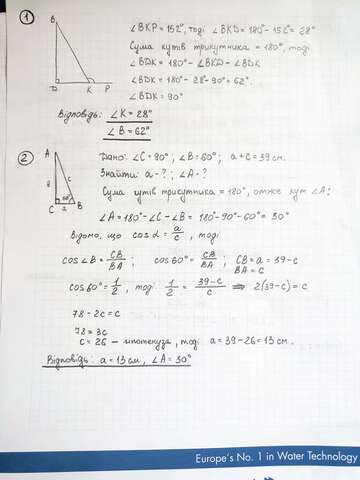 1
B
D K P
∠BKP = 152°, тоді ∠BKD = 180° - 152° = 28°
Сума кутів трикутника = 180°, тоді
∠BDK = 180° - ∠BKD - ∠BDK
∠BDK = 180° - 28° - 90° = 62°.
∠BDK = 90°
Відповідь: ∠K = 28°
∠B = 62°
2
A
в c
C a 60° B
Дано: ∠C = 90°; ∠B = 60°; a + c = 39 см.
Знайти: a - ? ∠A - ?
Сума кутів трикутника = 180°, отже кут ∠A:
∠A = 180° - ∠C - ∠B = 180° - 90° - 60° = 30°
Відомо, що cos α = a/c, тоді
cos ∠B = CB/BA; cos 60° = CB/BA; CB = a = 39 - c
BA = c
cos 60° = 1/2, тоді 1/2 = (39 - c)/c ⇒ 2(39 - c) = c
78 - 2c = c
78 = 3c
c = 26 - гіпотенуза, тоді a = 39 - 26 = 13 см.
Відповідь: a = 13 см, ∠A = 30°
Europe's No. 1 in Water Technology